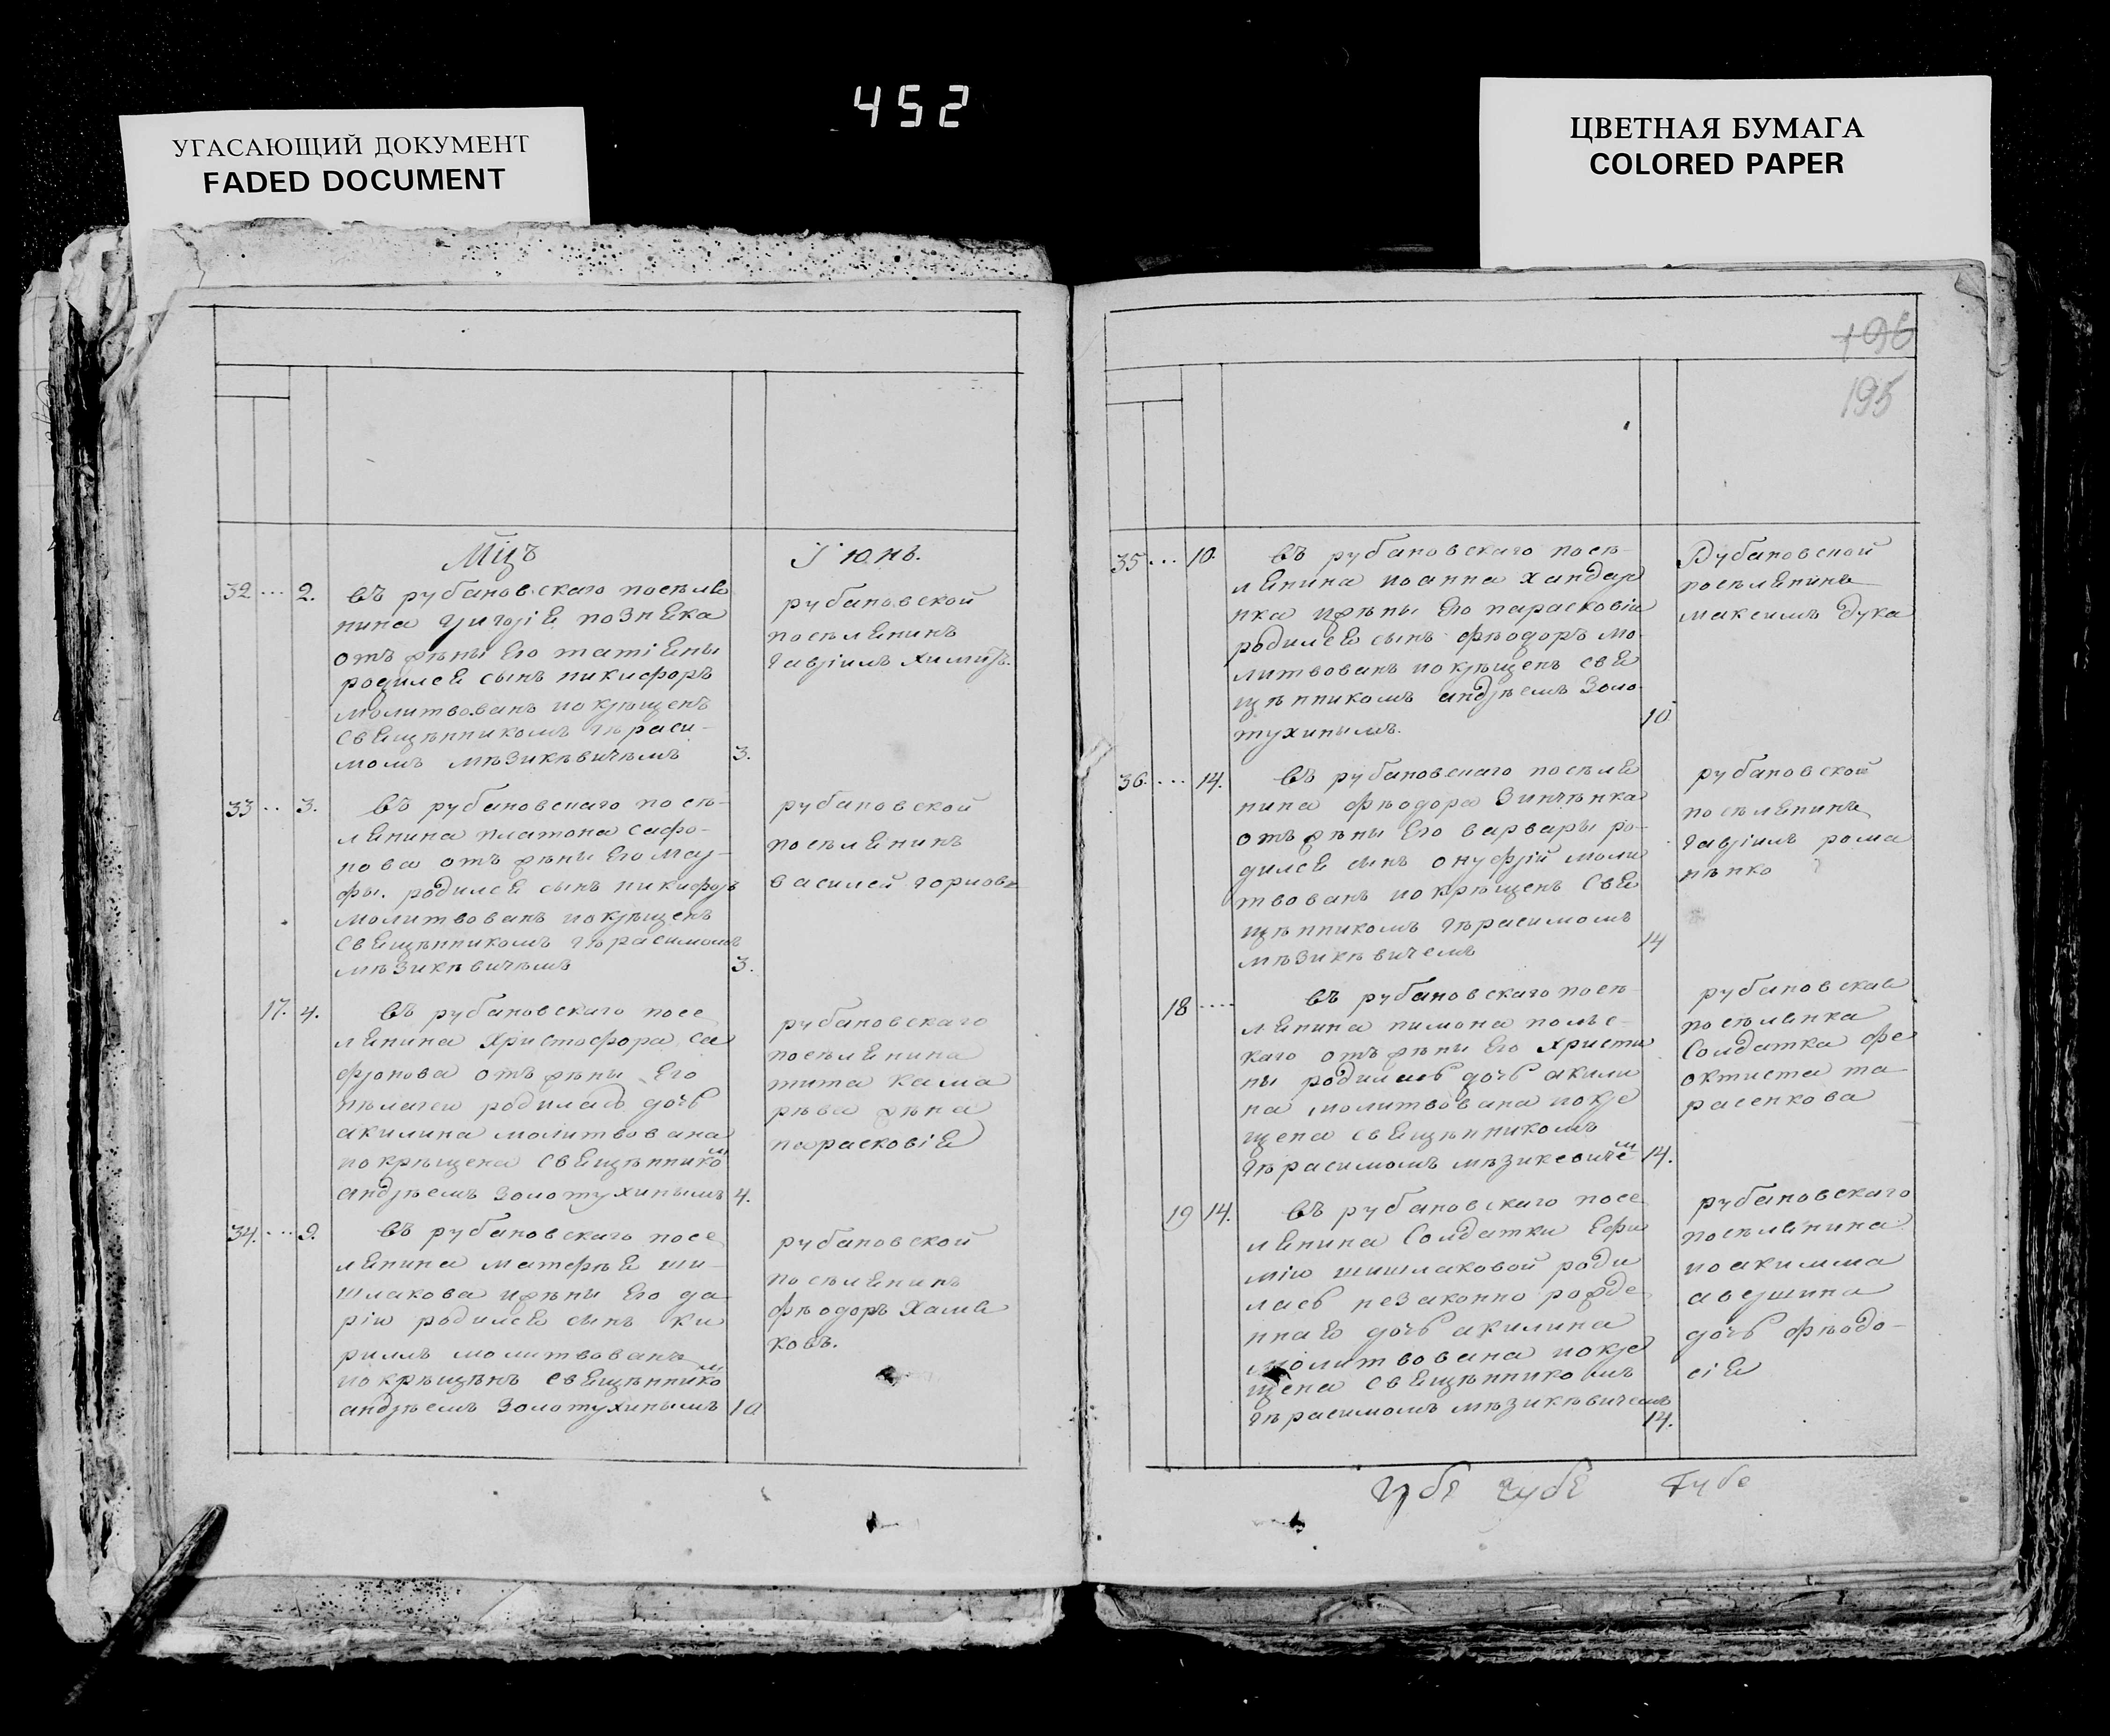 452
УГАСАЮЩИЙ ДОКУМЕНТ
FADED DOCUMENT
ЦВЕТНАЯ БУМАГА
COLORED PAPER
196
195
Мцъ Июнь.
32 ... 2. Въ рубановскаго поселѣ
нина григорія
отъ жѣны Его татіЕны
родилсЕ сынъ никифоръ
молитвованъ и окрѣщенъ
свЕщѣнникомъ гѣраси-
момъ мѣзикѣвичѣмъ 3.
рубановской
посѣлЕнинъ
гавріилъ
33 .. 3. Въ рубановскаго посѣ-
лЕнина платона сафо-
нова отъ жѣны Его мар-
фы. родилсЕ сынъ никифоръ
молитвованъ и окрѣщенъ
свЕщѣнникомъ гѣрасимомъ
мѣзикѣвичѣмъ 3.
рубановской
посѣлЕнинъ
василей
17. 4. Въ рубановскаго посе
лЕнина христофора са
фронова отъ жѣны Его
пѣлагеи родилась дочь
акилина молитвована
и окрѣщена свЕщѣннико м
андрѣемъ золотухинымъ 4.
рубановскаго
посѣлЕнина
тита кама
рѣва жѣна
парасковіЕ
34. ... 9. Въ рубановскаго посе
лЕнина матфѣЕ ши-
шлакова и жѣны Его да-
ріи родилсЕ сынъ ки
рилъ молитвованъ
и окрѣщѣнъ свЕщѣннико м
андрѣемъ золотухинымъ 10
рубановской
посѣлЕнинъ
фѣодоръ
ковъ.
35 ... 10. Въ рубановскаго посѣ-
лЕнина иоанна
нка и жѣны Его парасковіи
родилсЕ сынъ фѣодоръ мо-
литвованъ и окрѣщенъ свЕ
щѣнникомъ андрѣемъ золо-
тухинымъ. 10
Рубановской
посѣлЕнинъ
максимъ дука
36. ... 14. Въ рубановскаго посѣлЕ
нина фѣодора зинчѣнка
отъ жѣны Его варвары ро-
дилсЕ сынъ онуфрій моли
твованъ и окрѣщенъ свЕ
щѣнникомъ гѣрасимомъ
мѣзикѣвичемъ 14
рубановской
посѣлЕнинъ
гавріилъ рома
нѣнко
18 .... Въ рубановскаго посѣ-
лЕнина пимона польс-
каго отъ жѣны Его христи
ны родилась дочь акили
на молитвована и окре
щена свЕщѣнникомъ
гѣрасимомъ мѣзикевиче м 14.
рубановскаЕ
посѣлЕнка
солдатка фе
октиста та-
расенкова
19 14. Въ рубановскаго посе
лЕнина солдатки Ефи
міи шишлаковой роди
лась незаконно рожде
ннаЕ дочь акилина
молитвована и окре
щена свЕщѣнникомъ
гѣрасимомъ мѣзикѣвичемъ
14.
рубановскаго
посѣлЕнина
иоакимма
авершина
дочь фѣодо-
сіЕ
губе губе Губе